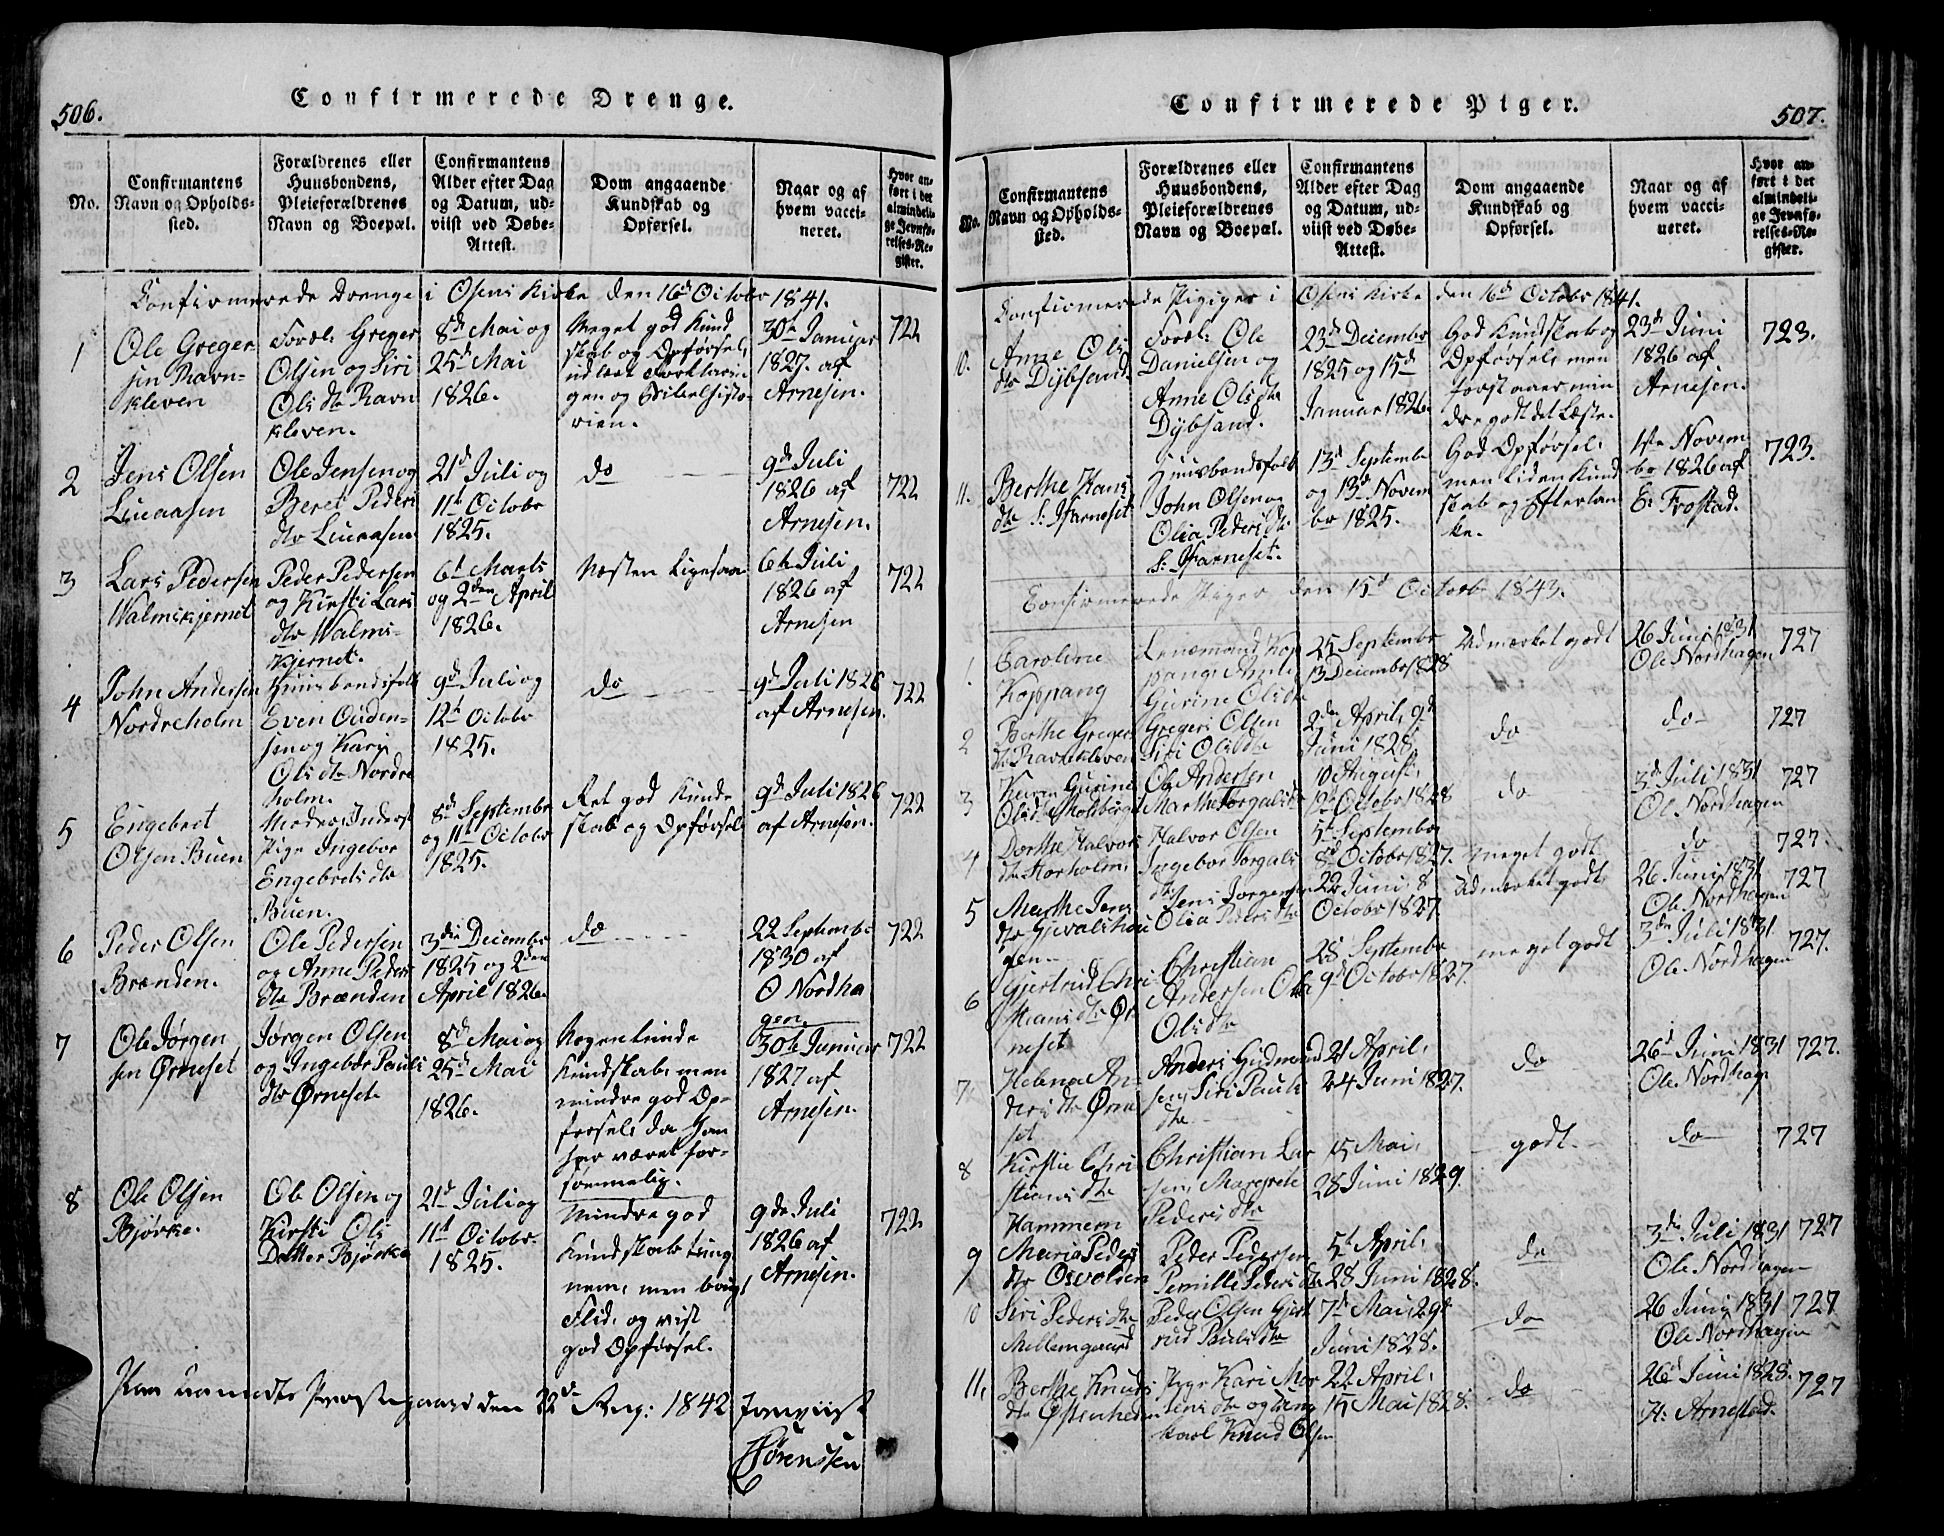 506.
Confirmerede Drenge.
No.
Confirmantens
Navn og Opholds-
sted.
Forældrenes eller
Huusbondens,
Pleieforældrenes
Navn og Boepæl.
Confirmantens
Alder efter Dag
og Datum, ud-
viist ved Døbe-
Attest.
Dom angaaende
Kundskab og
Opførsel.
Naar og af
hvem vacci-
neret.
Hvor an-
ført i det
almindeli-
ge Jevnfø-
relses-Re-
gister.
Confirmerede Drenge i Osens Kirke den 16d Octobr 1841.
1
Ole Greger
sen Ravn-
kleven
Foræl: Greger
Olsen og Siri
Ols dtr Ravn
kleven.
8d Mai og
25d Mai
1826.
Meget god Kund
skab og Opførsel,
udlæst Forklarin
gen og Bibelhisto-
rien.
30te Januar
1827. af
Arnesen.
722
2
Jens Olsen
Liuaasen
Ole Jensen og
Beret Peders
dtr Liuaasen
21d Juli og
11te Octobr
1825.
do
9d Juli
1826 af
Arnesen.
722
3
Lars Pedersen
Walmskjernet
Peder Pedersen
og Kirsti Lars
dtr Walms-
kjernet.
6t Marts
og 2den April
1826.
Næsten ligesaa
6te Juli
1826 af
Arnesen
722
4
John Andersen
Nordreholm
Huusbondsfolk
Even Ouden-
sen og Kari
Ols dtr Nordre
holm.
9d Juli og
12t Octobr
1825.
do
9d Juli 1826
af Arnesen.
722
5
Engebret
Olsen Buen
Moder: Inderst
Pige Ingebor
Engebrets dtr
Buen.
8d Septembr
og 11te Octobr
1825.
Ret god Kund-
skab og Opførsel
9d Juli 1826
af Arnesen.
722
6
Peder Olsen
Brænden.
Ole Pedersen
og Anne Peders
dtr Brænden
3die Decembr
1825 og 2den
April 1826.
do
22 Septembr
1830 af
O Nordha
gen.
722
7
Ole Jørgen
sen Ørneset
Jørgen Olsen
og Ingebor Pauls
dtr Ørneset
8d Mai og
25d Mai
1826.
Nogenlunde
Kundskab, men
mindre god Op-
førsel, da han
har været for-
sømmelig.
30te Januar
1827 af
Arnesen.
722
8
Ole Olsen
Bjørke.
Ole Olsen og
Kirsti Ols
Datter Bjørke
21d Juli og
11t Octobr.
1825.
Mindre god
Kundskab, tung
nem, men brugt
Flid, og vist
god Opførsel.
9de Juli
1826 af
Arnesen.
722
Præstegaard den 22d Aug: 1842
Sørenssen
Confirmerede Piger.
507.
No.
Confirmantens
Navn og Opholds-
sted.
Forældrenes eller
Huusbondens,
Pleieforældrenes
Navn og Boepæl.
Confirmantens
Alder efter Dag
og Datum, ud-
viist ved Døbe-
Attest.
Dom angaaende
Kundskab og
Opførsel.
Naar og af
hvem vacci-
neret.
Hvor an-
ført i det
almindeli-
ge Jevnfø-
relses-Re-
gister.
Confirmerede Piger i Osens Kirke den 16d Octobr 1841.
10.
Anne Ols
dtr Dybsand.
Foræl: Ole
Danielsen og
Anne Ols dtr
Dybsand.
23d Decembr
1825 og 15d
Januar 1826.
God Kundskab og
Opførsel, men
forstaaer min
dre godt det Læste.
23d Juni
1826 af
Arnesen.
723.
11.
Berthe Hans
dtr S: Harneset
Huusbondsfolk
John Olsen og
Olia Peders dtr
S: Harneset.
13d Septembr
og 13d Novem
br 1825.
God Opførsel,
men liden Kund
skab og Eftertan
ke.
1ste Novem
br 1826 af
E: Frostad.
723.
Confirmerede Piger den 15d Octobr 1843.
1
Caroline
Koppang
pang, Anne
Gurine Olsdtr
25 Septembr
13 Decembr 1828
Udmærket godt
26 Juni 1831
Ole Nordhagen
727
2
Berthe Gregers
dtr Ravnkleven
Gregers Olsen
Siri Olsdtr
2den April, 9d
Juni 1828.
do
do
727
3
Karen Gurine
Olsdtr Moldberget
Ole Andersen
Marthe Torgalsdtr
10 August,
12te Octobr 1828
do
3de Juli 1831
Ol. Nordhagen
727
4
Dorthe Halvors
dtr Storholm
Halvor Olsen
Ingebor Torgals
dtr
5t Septembr
8d Octobr 1827.
meget godt
do
727.
5
Marthe Jens
gen
Jens Jørgensen
Olia Peders dtr
22 Juni, 8
Octobr 1827
Udmærket godt
26 Juni 1831
Ole Nordhagen
727
6
Gjertrud Chri
stians dtr Ør
neset
Christian
Andersen Ola
Ols dtr
28 Septembr
9d Octobr 1827.
meget godt
3de Juli 1831.
Ole Nordhagen
727.
7
Helena An-
ders dtr Ørne
set
Anders Gudmund
sen, Siri Pauls
dtr
21 April,
24 Juni 1827.
do
26d Juni 1831
Ole Nordhag
727.
8
Kirstie Chri
stians dtr
Hammern
Christian Lar
sen, Margrete
Peders dtr
15 Mai,
28 Juni 1829.
godt
do
727
9
Maria Peders
dtr Osvolden
Peder Pedersen
Pernille Peders dtr
5t April,
28 Juni 1828.
do
3de Juli 1831
Ole Nordhagen
727
10
Siri Peders dtr
Mellemgaard
Peder Olsen Gjert
rud Pauls dtr
7d Mai, 29d
Juni 1828.
do
26 Juni 1831
Ole Nordhagen
727
11.
Berthe Knuds
dtr Østenheden
Pige Kari Mor
tens dtr og Ung
karl Knud Olsen
22 April,
15 Mai 1828.
do
26d Juni 1828.
H: Arnestad.
727